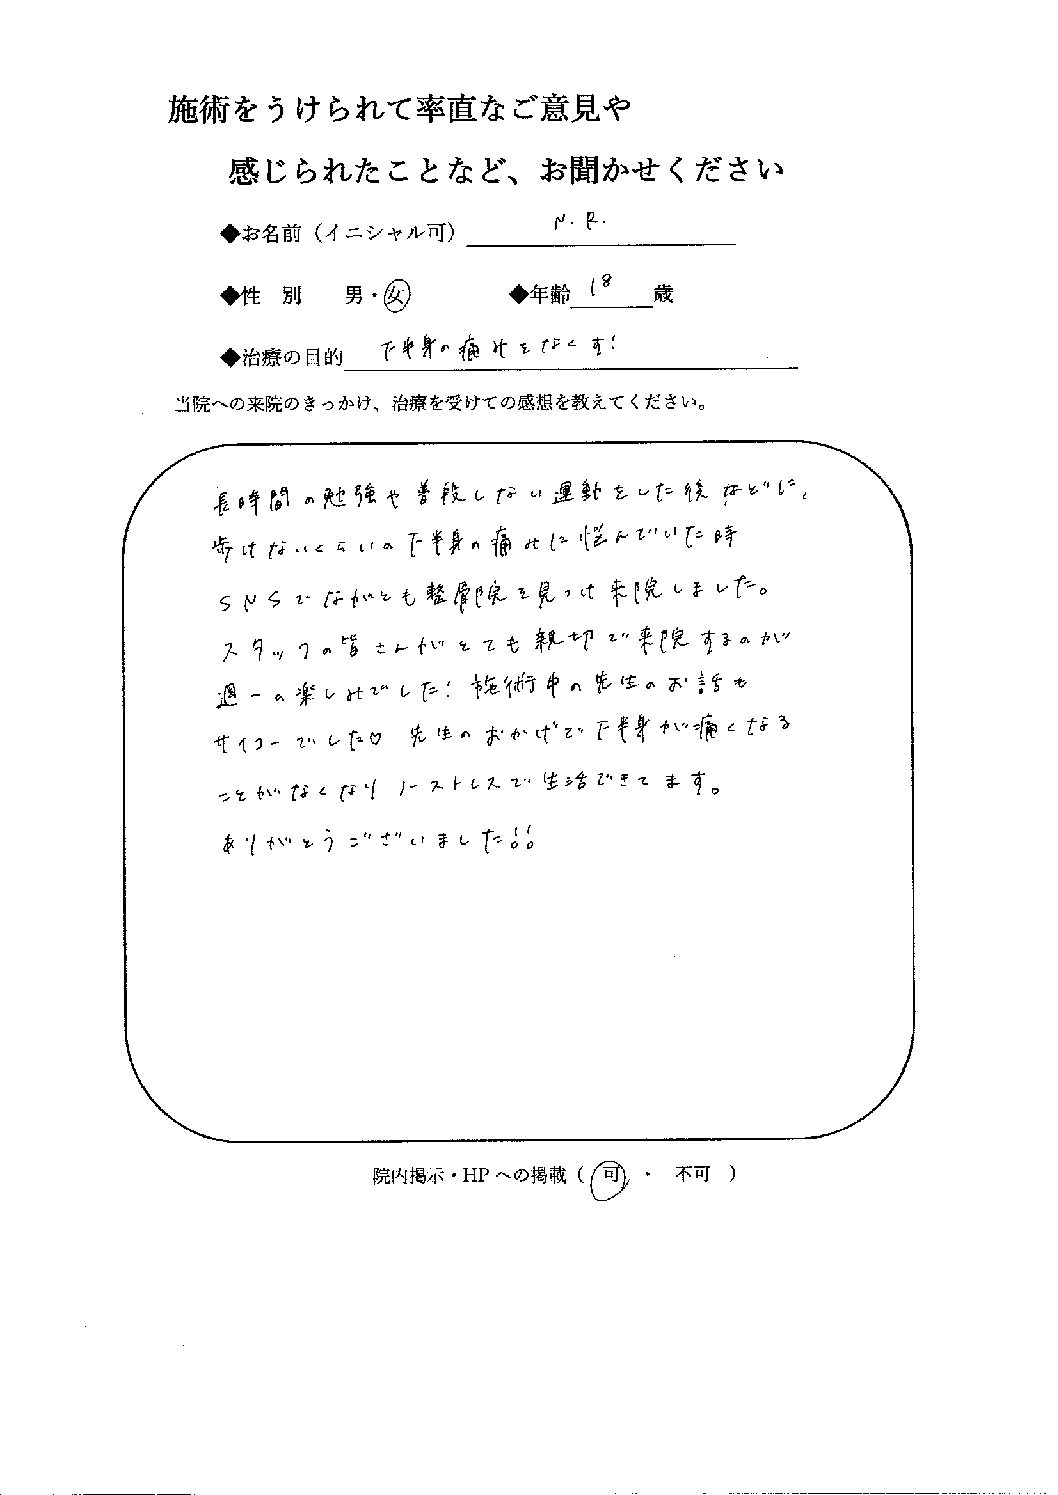 施術をうけられて率直なご意見や
感じられたことなど、お聞かせください
◆お名前（イニシャル可） N.R.
◆性 別 男・女 ◆年齢 18 歳
◆治療の目的 下半身の痛みをなくす!
当院への来院のきっかけ、治療を受けての感想を教えてください。
長時間の勉強や普段しない運動をした後などに、
歩けないくらいの下半身の痛みに悩んでいた時
SNSでながとも整骨院を見つけ来院しました。
スタッフの皆さんがとても親切で来院するのが
週一の楽しみでした! 施術中の先生のお話も
サイコーでした♡ 先生のおかげで下半身が痛くなる
ことがなくなりノーストレスで生活できてます。
ありがとうございました!!
院内掲示・HPへの掲載（ 可 ・ 不可 ）